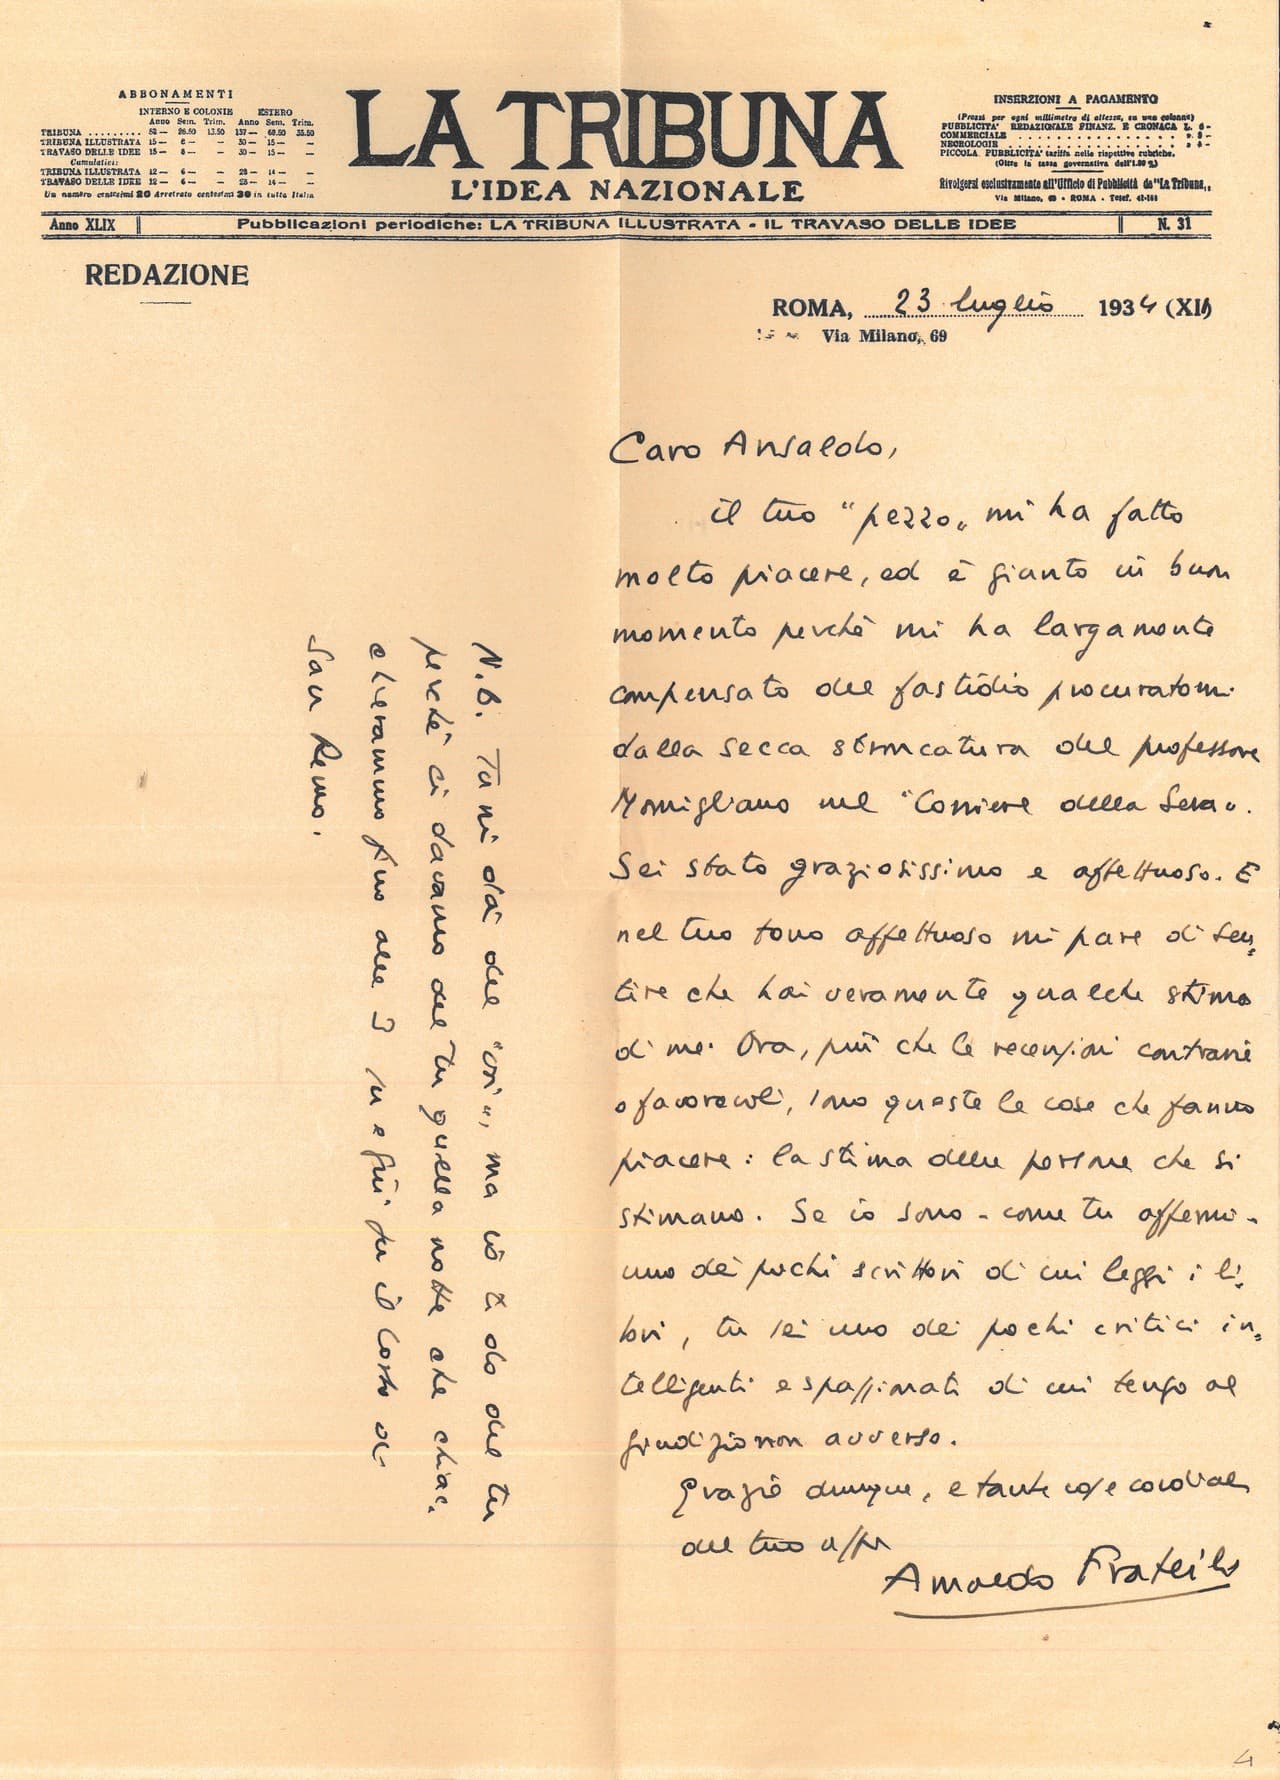 ABBONAMENTI
INTERNO E COLONIE ESTERO
Anno Sem. Trim. Anno Sem. Trim.
TRIBUNA ......... 52 — 26.50 13.50 137 — 69.50 35.50
TRIBUNA ILLUSTRATA 15 — 8 — — 30 — 15 — —
TRAVASO DELLE IDEE 15 — 8 — — 30 — 15 — —
Cumulativi:
TRIBUNA ILLUSTRATA 12 — 6 — — 28 — 14 — —
TRAVASO DELLE IDEE 12 — 6 — — 28 — 14 — —
Un numero centesimi 20 Arretrato centesimi 30 in tutta Italia
LA TRIBUNA
L'IDEA NAZIONALE
INSERZIONI A PAGAMENTO
(Prezzi per ogni millimetro di altezza, su una colonna)
PUBBLICITA' REDAZIONALE FINANZ. E CRONACA L. 6-
COMMERCIALE
NECROLOGIE
PICCOLA PUBBLICITA' tariffa nelle rispettive rubriche.
(Oltre la tassa governativa dell'1.80 %)
Rivolgersi esclusivamente all'Ufficio di Pubblicità de "La Tribuna„
Via Milano, 69 - ROMA - Telef.
Anno XLIX Pubblicazioni periodiche: LA TRIBUNA ILLUSTRATA - IL TRAVASO DELLE IDEE N. 31
REDAZIONE
ROMA, 23 luglio 1934 (XII)
Via Milano, 69
Caro Ansaldo,
il tuo "pezzo„ mi ha fatto
molto piacere, ed è giunto in buon
momento perchè mi ha largamente
compensato del fastidio procuratomi
dalla secca stroncatura del professore
Momigliano nel "Corriere della Sera„.
Sei stato graziosissimo e affettuoso. E
nel tuo tono affettuoso mi pare di sen-
tire che hai veramente qualche stima
di me. Ora, più che le recensioni contrarie
o favorevoli, sono queste le cose che fanno
piacere: la stima delle persone che si
stimano. Se io sono - come tu affermi -
uno dei pochi scrittori di cui leggi i li-
bri, tu sei uno dei pochi critici in-
telligenti e spassionati di cui tengo al
giudizio non avverso.
Grazie dunque, e tante cose cordiali
del tuo aff.
Arnaldo Frateili
N.B. Tu mi dai del "voi„, ma io ti do del tu
perchè ci davamo del tu quella notte che chiac-
chierammo fino alle 3 su e giù per il Corso di
San Remo.
4